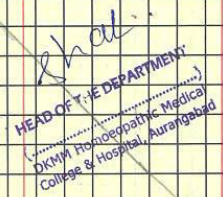 HEAD OF THE DEPARTMENT
(........................)
DKMM Homoeopathic Medical
College & Hospital, Aurangabad